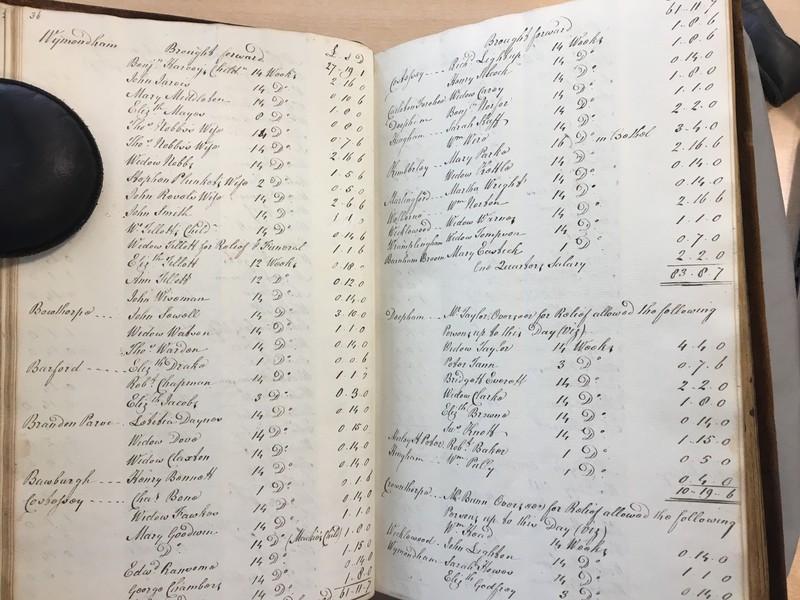 36
Wymondham Brought forward £ s D
Benjn Harvey's Childn 14 Weeks 27-19-1
John Jarow 14 Do 2 16 0
Mary Middleton 14 Do 0 10 6
Elizth Mayes 8 Do 1 8 0
Thos Nobbs's Wife 14 Do 0 8 0
Thos Nobbs's Wife 14 Do 0 7 6
Widow Nobbs 14 Do 2 16 6
Stephen Plunket's Wife 2 Do 1 5 6
John Rovels Wife 14 Do 0 5 0
John Smith 14 Do 2 6 6
Wm Tilletts Child 14 Do 1 1
Widow Tillett for Relief & Funeral 0 14 6
Elizth Tillett 12 Weeks 1 1 6
Ann Tillett 12 Do 0 18 0
John Wiseman 14 Do 0 12 0
Bowthorpe John Sewell 14 Do 0 14 0
Widow Watson 14 Do 3 10 0
Thos Warden 14 Do 1 1 0
Barford Elizth Drake 1 Do 0 14 0
Robt Chapman 14 Do 0 0 6
Elizth Jacobs 3 Do 1 1
Branden Parve Letetia Daynes 14 Do 0 3 0
Widow Dove 14 Do 0 14 0
Widow Claxton 14 Do 0 15 0
Bawburgh Henry Bennett 1 Do 0 14 0
Costessey Chas Bone 14 Do 0 14 0
Widow Fawkes 14 Do 0 1 6
Mary Goodwin 14 Do 0 14 0
Do 14 Do Child 1 1 0
Edwd Ransome 14 Do 1 0 0
George Chambers 14 Do 1 15 0
0 14 0
1 8 0
61-11-7
Brought forward 61-11-7
Costessey Richd Lightup 14 Weeks 1 8 6
Henry Silcock 14 Do 1 8 6
Widow Carey 14 Do 0 14 0
Deepham Benjn 14 Do 1 8 0
Hingham Sarah 14 Do 1 1 0
Wm 16 Do in Bethel 2 2 0
Kimberley Mary Parke 14 Do 3 4 0
Widow Trottle 14 Do 2 16 6
Marlingford Martha Wright 14 Do 0 14 0
Welborne Wm Norton 14 Do 0 14 0
Wicklewood Widow 14 Do 2 16 6
Wramplingham Widow Tompson 14 Do 1 1 0
Barnham Broom Mary Eastick 1 Do 0 7 0
One Quarters Salary 2 2 0
83-8-7
Deepham Mr Taylor Overseer for Relief allowed the following
Persons up to this Day (Viz)
Widow Taylor 14 Weeks 4 4 0
Peter Tann 3 Do 0 7 6
Bridgett Everett 14 Do 2 2 0
Widow Clarke 14 Do 1 8 0
Elizth Browne 14 Do 0 14 0
Knott 14 Do 1 15 0
Robt Baker 1 Do 0 5 0
Hingham Wm 1 Do 0 4 0
10-19-6
Crownthorpe Mr Bann Overseer for Relief allowed the following
Persons up to this Day (Viz)
Wm 14 Weeks 0 14 0
Wicklewood John Leighton 14 Do 1 1 0
Wymondham Sarah Howes 14 Do 0 14 0
Elizth Godfrey 3 Do